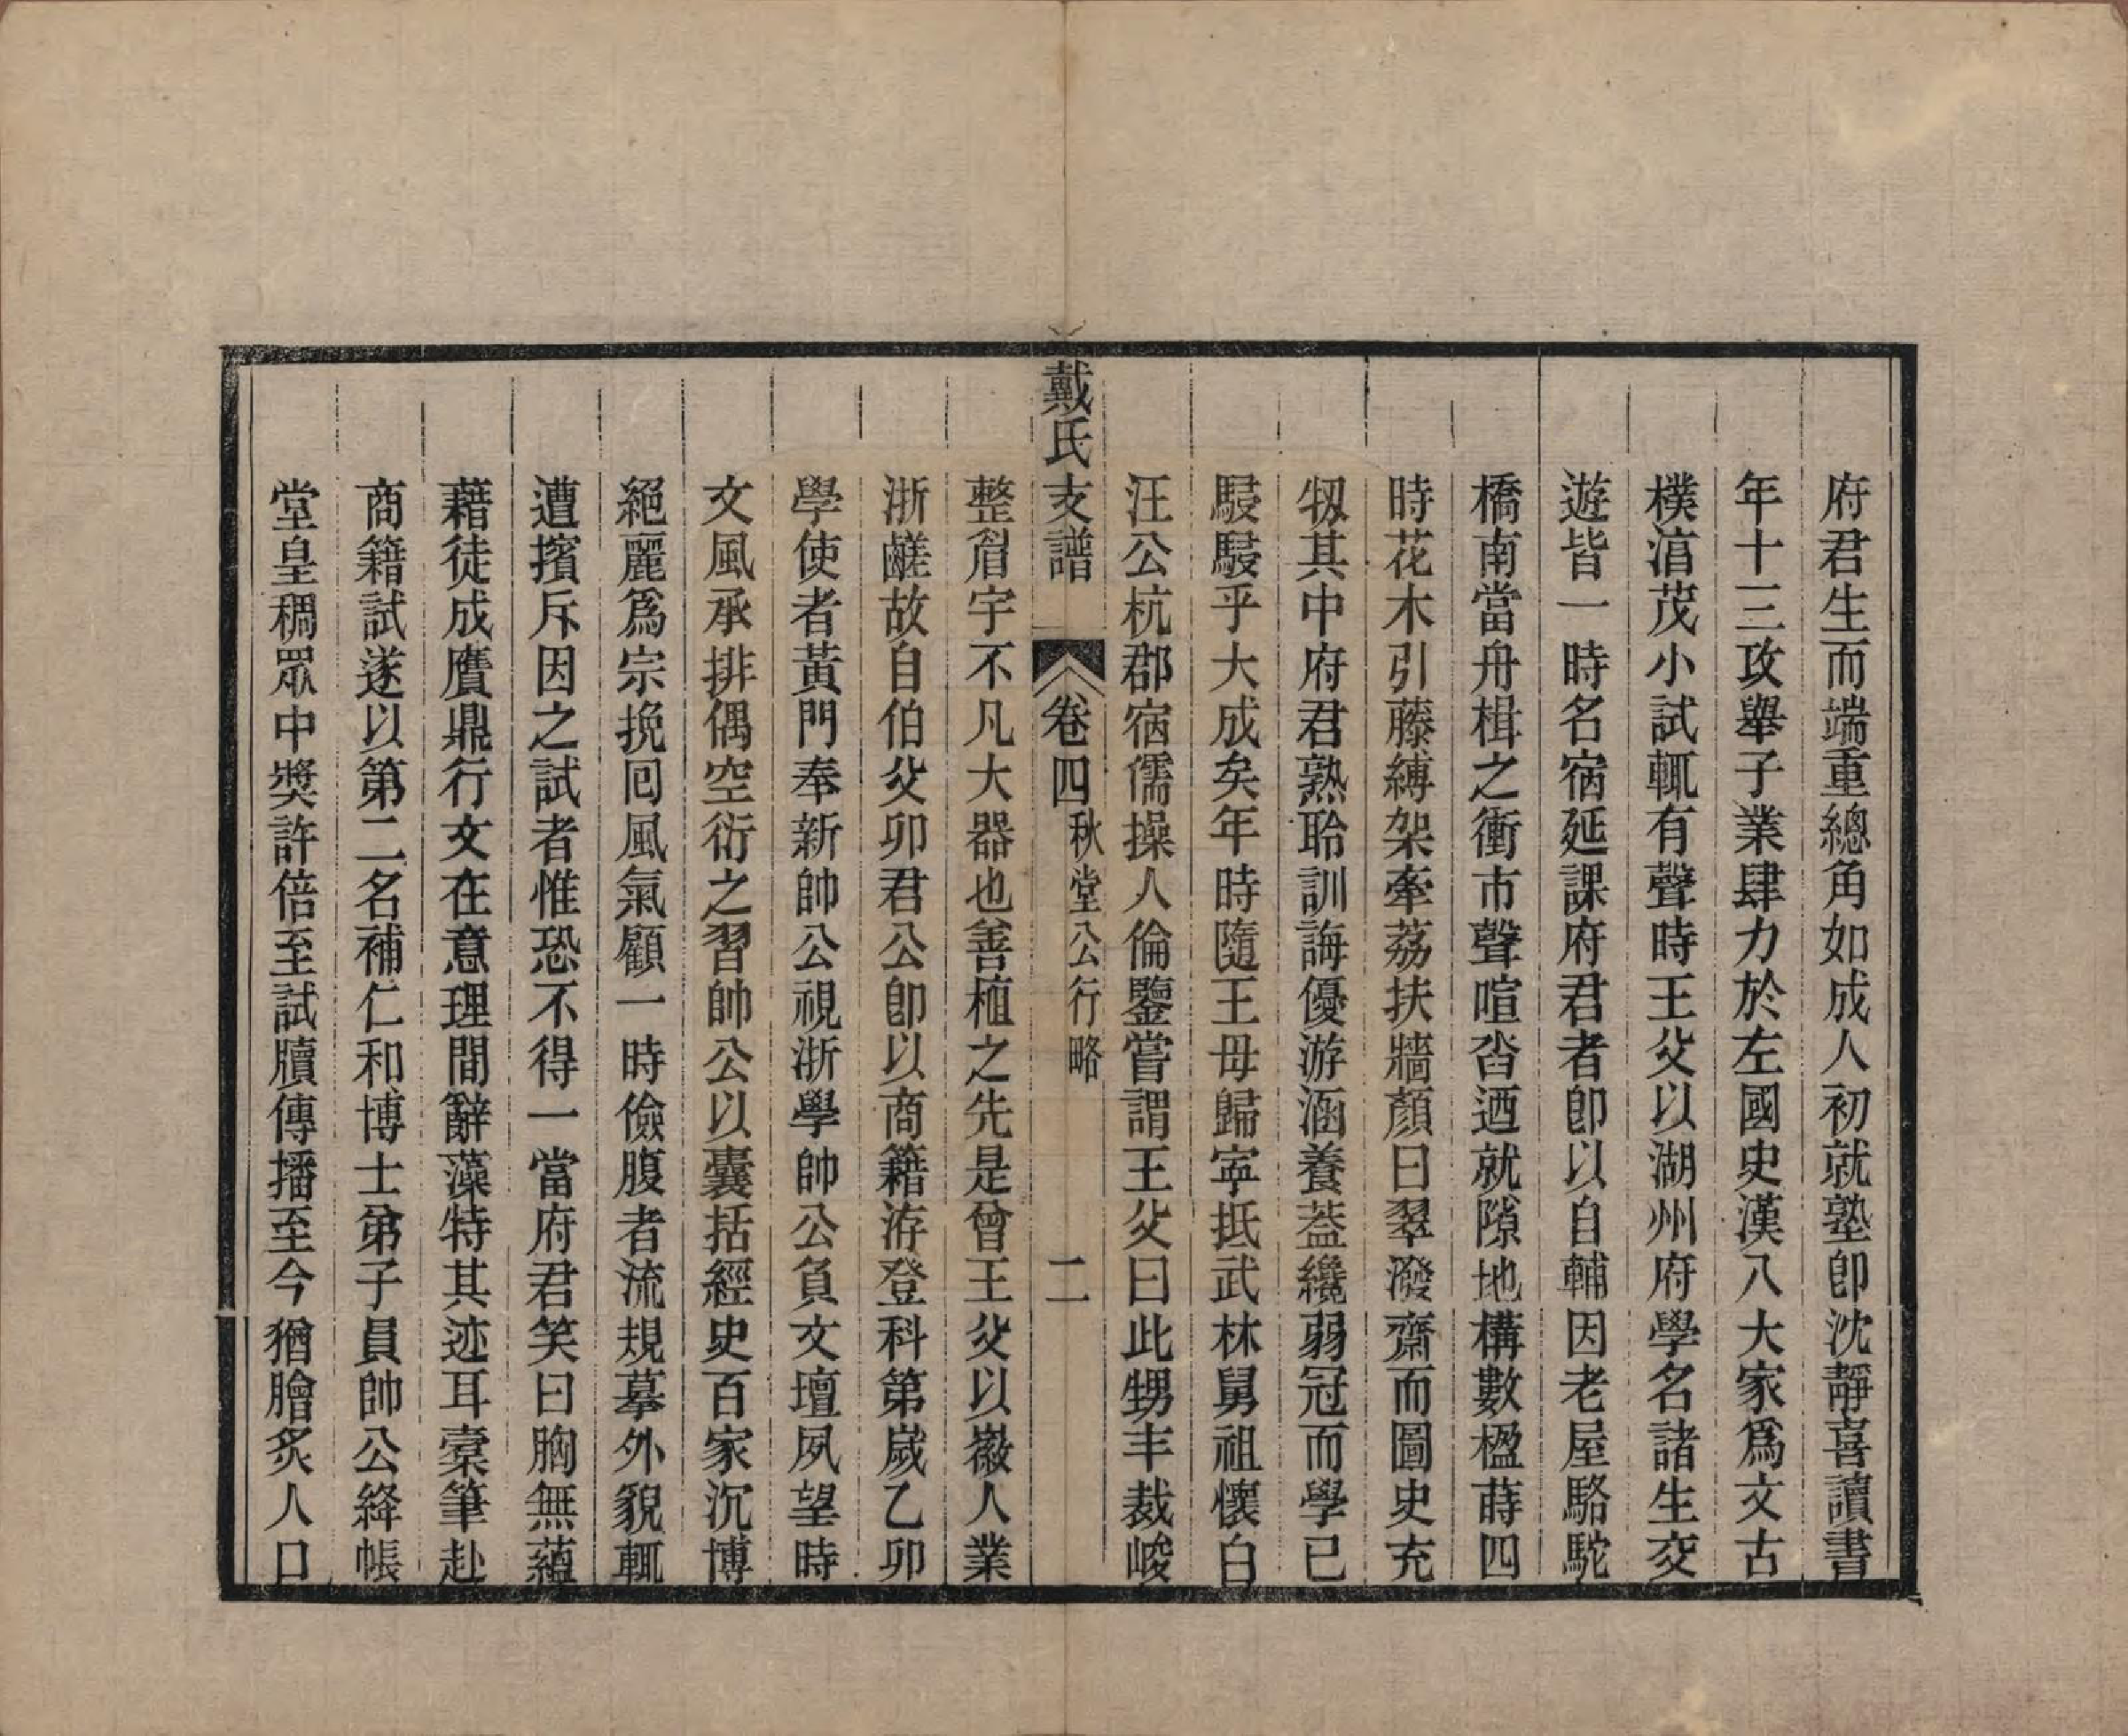 府君生而端重總角如成人初就塾卽沈靜喜讀書
年十三攻舉子業肆力於左國史漢八大家爲文古
樸湻茂小試輒有聲時王父以湖州府學名諸生交
遊皆一時名宿延課府君者卽以自輔因老屋駱駝
橋南當舟楫之衝市聲喧沓迺就隙地構數楹蒔四
時花木引藤縛架牽荔扶牆顏曰翠潑齋而圖史充
牣其中府君熟聆訓誨優游涵養葢纔弱冠而學已
駸駸乎大成矣年時隨王母歸寧抵武林舅祖懷白
汪公杭郡宿儒操人倫鑒嘗謂王父曰此甥丰裁峻
戴氏支譜 卷四 秋堂公行略 二
整眉宇不凡大器也善植之先是曾王父以徽人業
浙鹺故自伯父卯君公卽以商籍洊登科第歲乙卯
學使者黃門奉新帥公視浙學帥公負文壇夙望時
文風承排偶空衍之習帥公以囊括經史百家沉博
絕麗爲宗挽回風氣顧一時儉腹者流規摹外貌輒
遭擯斥因之試者惟恐不得一當府君笑曰胸無蘊
藉徒成贋鼎行文在意理間辭藻特其迹耳槖筆赴
商籍試遂以第二名補仁和博士弟子員帥公絳帳
堂皇稠眾中獎許倍至試牘傳播至今猶膾炙人口